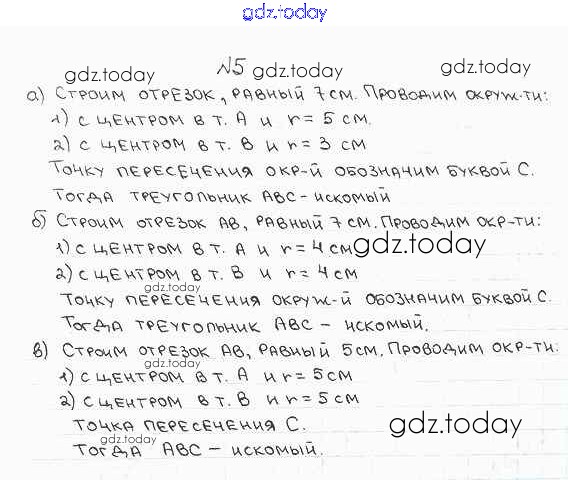 gdz.today
gdz.today №5 gdz.today gdz.today
а) Строим отрезок, равный 7 см. Проводим окруж-ти:
1) с центром в т. А и r = 5 см.
2) с центром в т. В и r = 3 см
Точку пересечения окр-й обозначим буквой С.
Тогда треугольник АВС – искомый
б) Строим отрезок АВ, равный 7 см. Проводим окр-ти:
1) с центром в т. А и r = 4 см gdz.today
2) с центром в т. В и r = 4 см
gdz.today
Точку пересечения окруж-й обозначим буквой С.
Тогда треугольник АВС – искомый.
в) Строим отрезок АВ, равный 5 см. Проводим окр-ти:
gdz.today
1) с центром в т. А и r = 5 см
2) с центром в т. В и r = 5 см
Точка пересечения С. gdz.today
gdz.today
Тогда АВС – искомый.